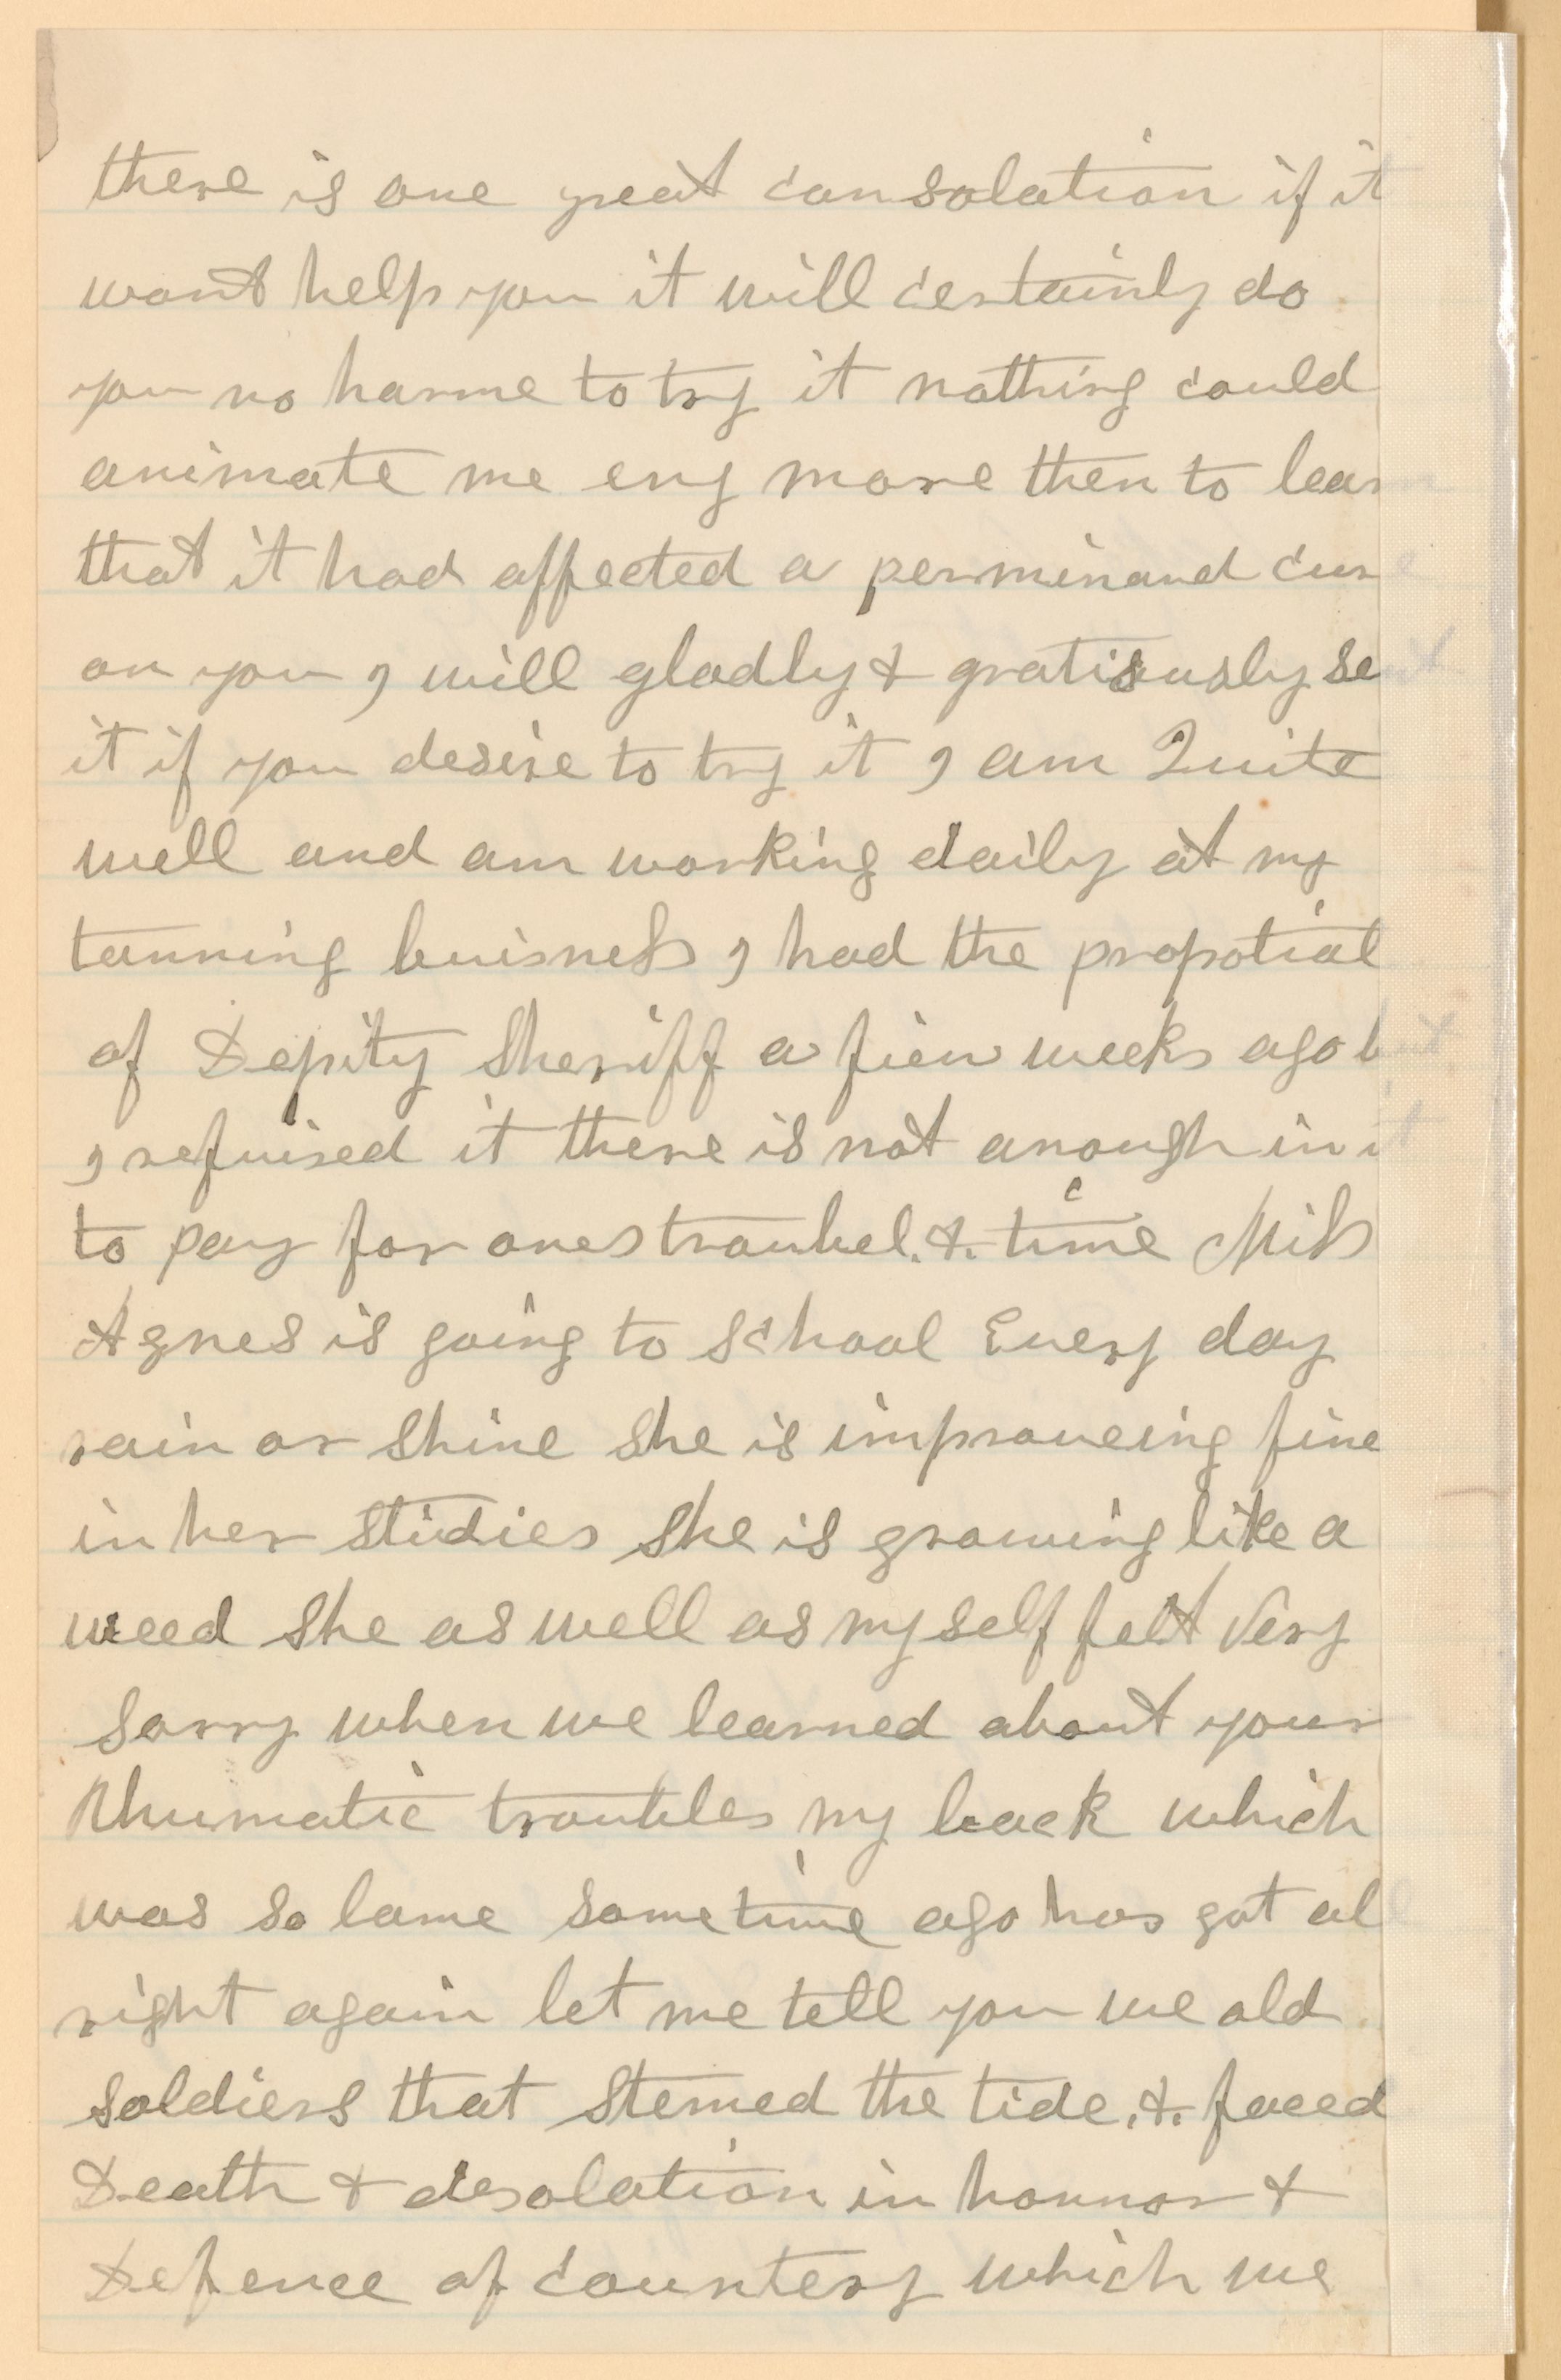 there is one great consolation if it
wont help you it will certainly do
you no harme to try it nothing could
animate me eny more then to lear
that it had affected a perminand cure
on you I will gladly & gratisusly sent
it if you desire to try it I am Quite
well and am working daily at my
tanning buisness I had the propotial
of Depity Sheriff a fiew weeks ago but
I refuised it there is not anough in it
to pay for ones troubel. &. time Miss
Agnes is going to school Every day
rain or shine She is improveing fine
in her studies She is growing like a
weed She as well as my self felt Very
Sorry when we learned about your
Rhumatic troubles my back which
was so lame sometime ago has got al
right again let me tell you we old
soldiers that stemed the tide. &. faced
Death & desolation in honnor &
Defence of countery which we